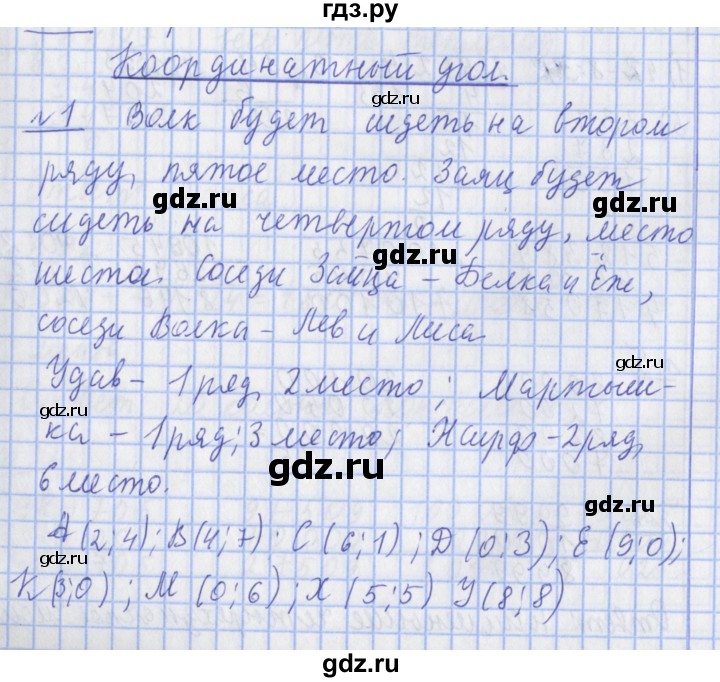 гдз.ру
Координатный угол.
gdz.ru
№1 Волк будет сидеть на втором
ряду, пятое место. Заяц будет
gdz.ru
gdz.ru
сидеть на четвертом ряду, место
gdz.ru
шестое. Соседи Зайца – Белка и Ёж,
соседи Волка – Лев и Лиса
gdz.ru
Удав – 1 ряд, 2 место; Мартыш-
gdz.ru
ка – 1 ряд; 3 место; Жираф – 2 ряд,
gdz.ru
6 место.
gdz.ru
А (2; 4); В (4; 7); С (6; 1); Д (0; 3); Е (9; 0);
gdz.ru
К (3; 0); М (0; 6); Х (5; 5) У (8; 8)
gdz.ru
gdz.ru